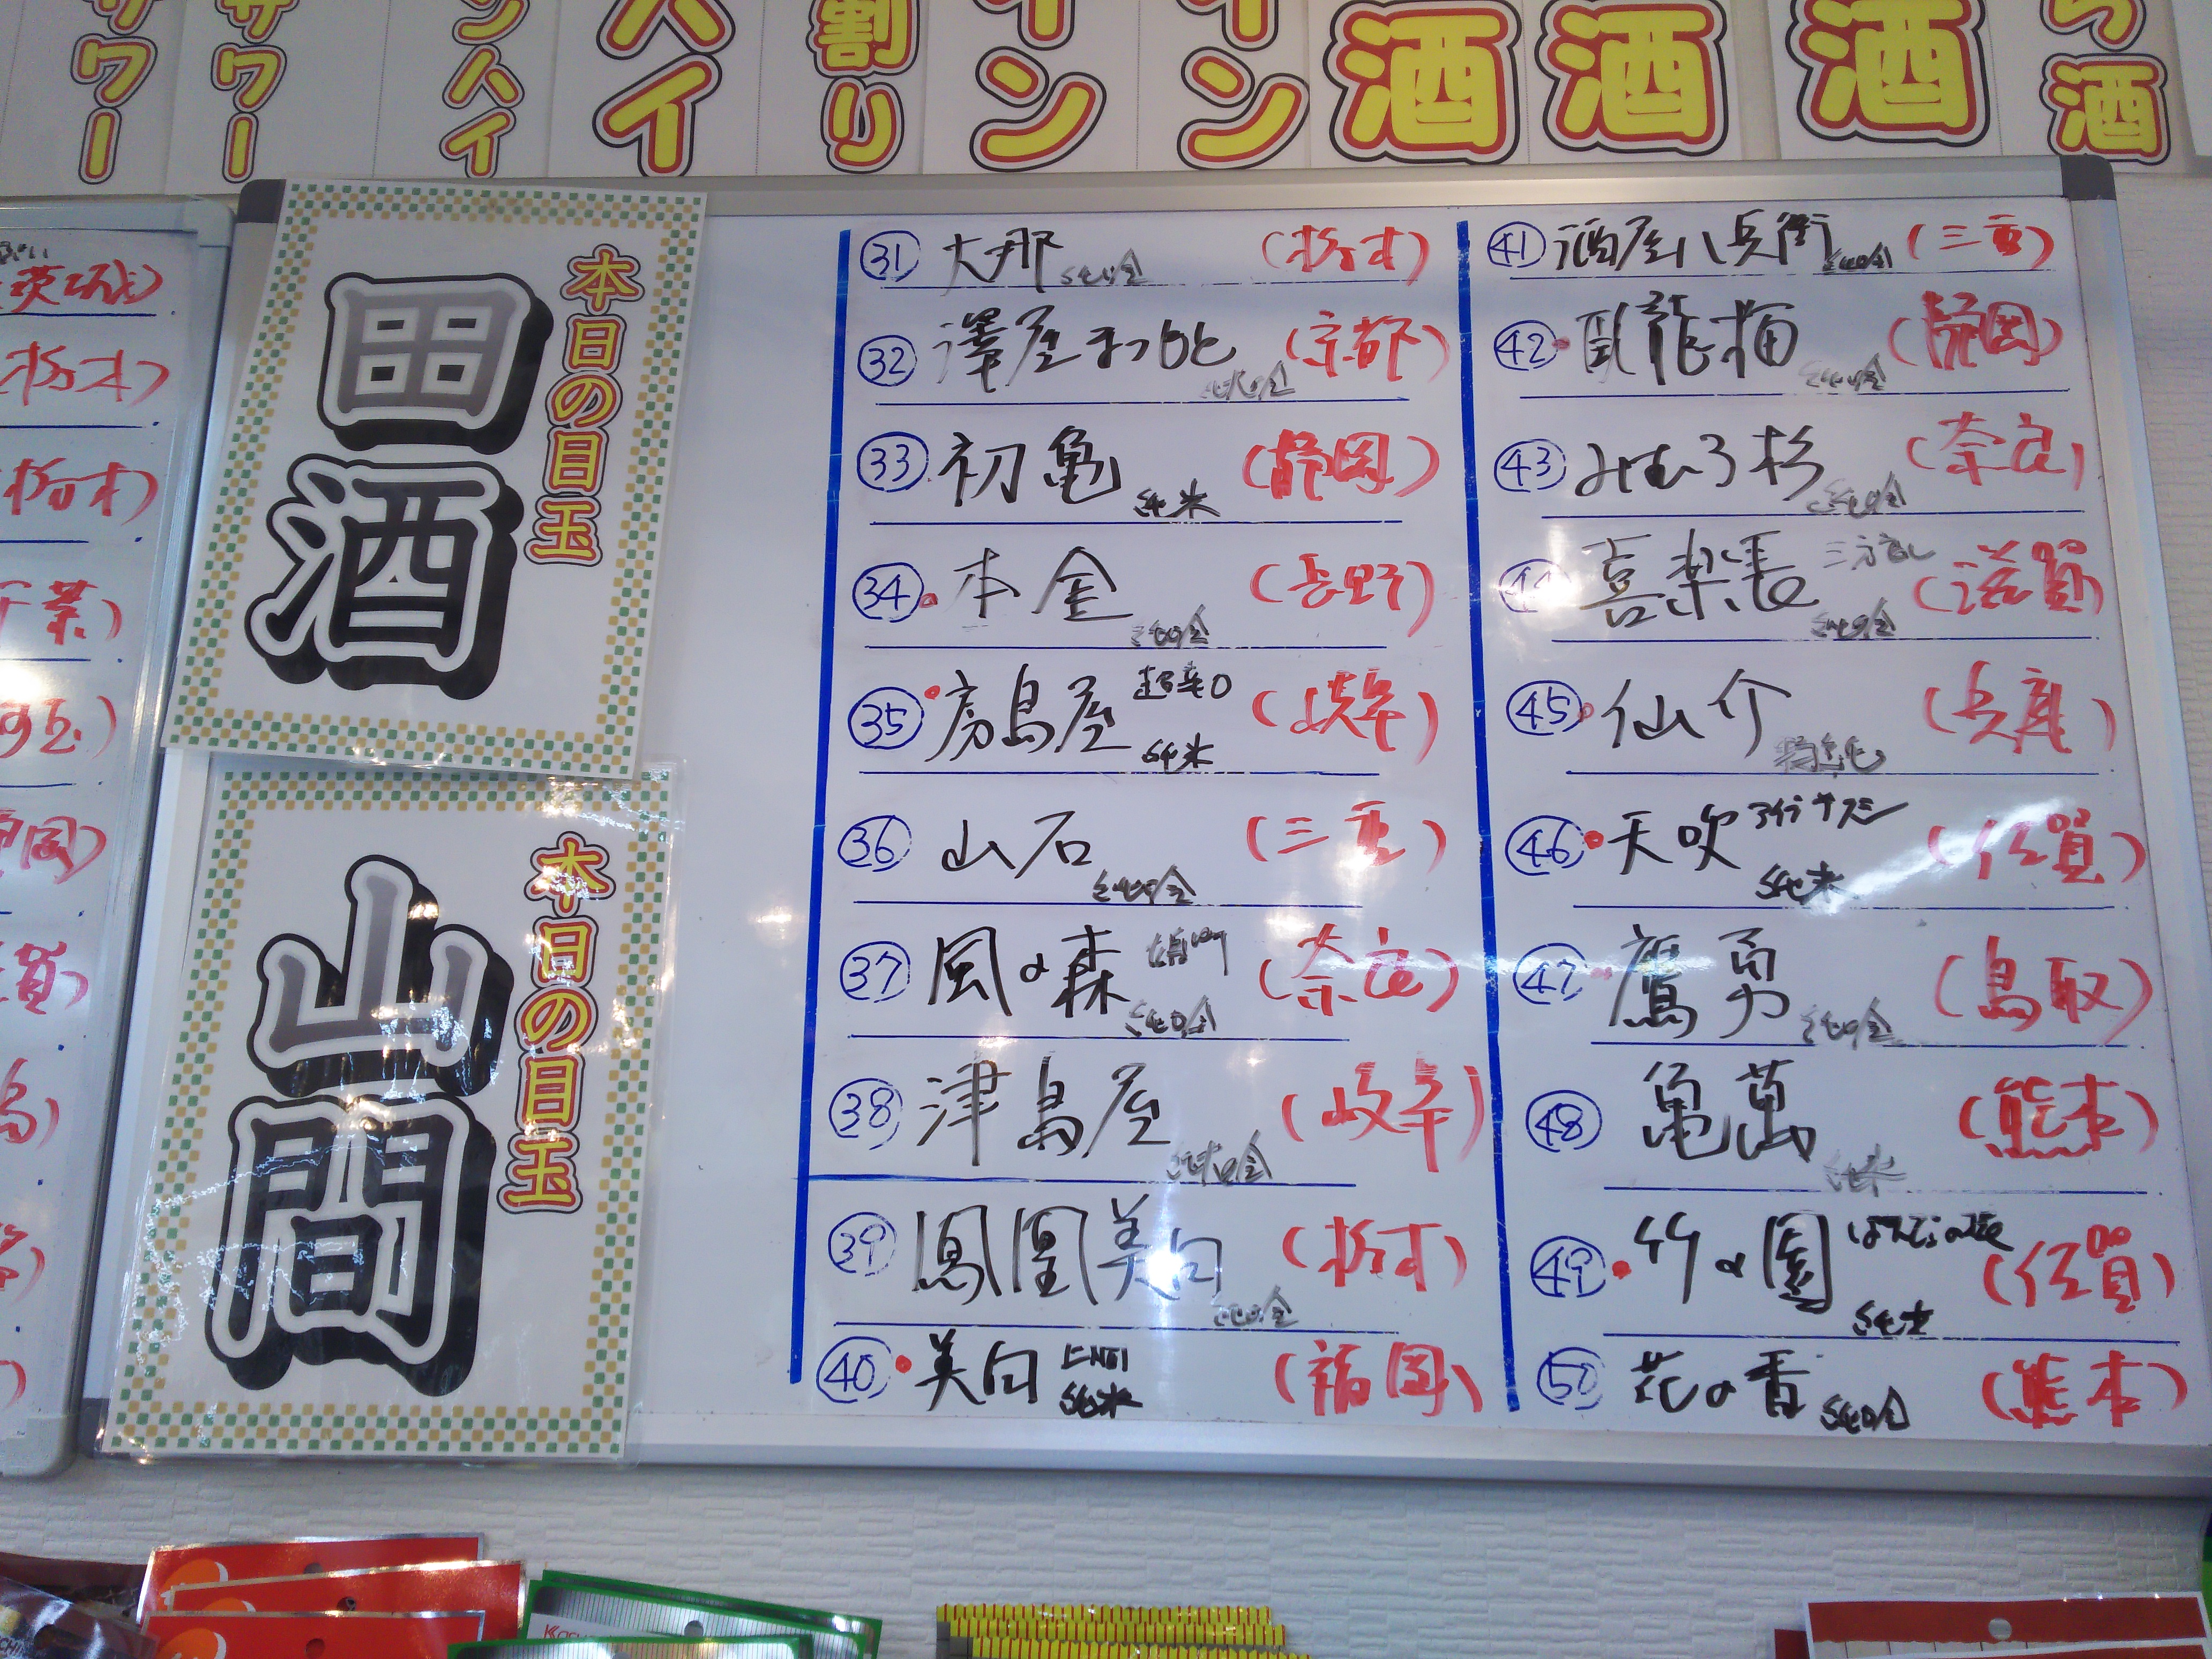 サワー
サワー
ンハイ
ハイ
割り
イン
イン
酒
酒
酒
ら酒
茨城)
栃木)
栃木)
千葉)
本日の目玉
田酒
本日の目玉
山間
㉛ 大那 純吟 (栃木)
㉜ 澤屋まつもと 純米吟 (京都)
㉝ 初亀 純米 (静岡)
㉞ 本金 純吟 (長野)
㉟ 房島屋 超辛口 純米 (岐阜)
㊱ 山石 純吟 (三重)
㊲ 風の森 純吟 (奈良)
㊳ 津島屋 純米吟 (岐阜)
㊴ 鳳凰美田 純吟 (栃木)
㊵ 美田 純米 (福岡)
㊶ 酒屋八兵衛 純吟 (三重)
㊷ 臥龍梅 純吟 (静岡)
㊸ みむろ杉 純吟 (奈良)
㊹ 喜楽長 純吟 (滋賀)
㊺ 仙介 特純 (兵庫)
㊻ 天吹 純米 (佐賀)
㊼ 鷹勇 純吟 (鳥取)
㊽ 亀萬 純米 (熊本)
㊾ 竹の園 純米 (佐賀)
㊿ 花の香 純吟 (熊本)